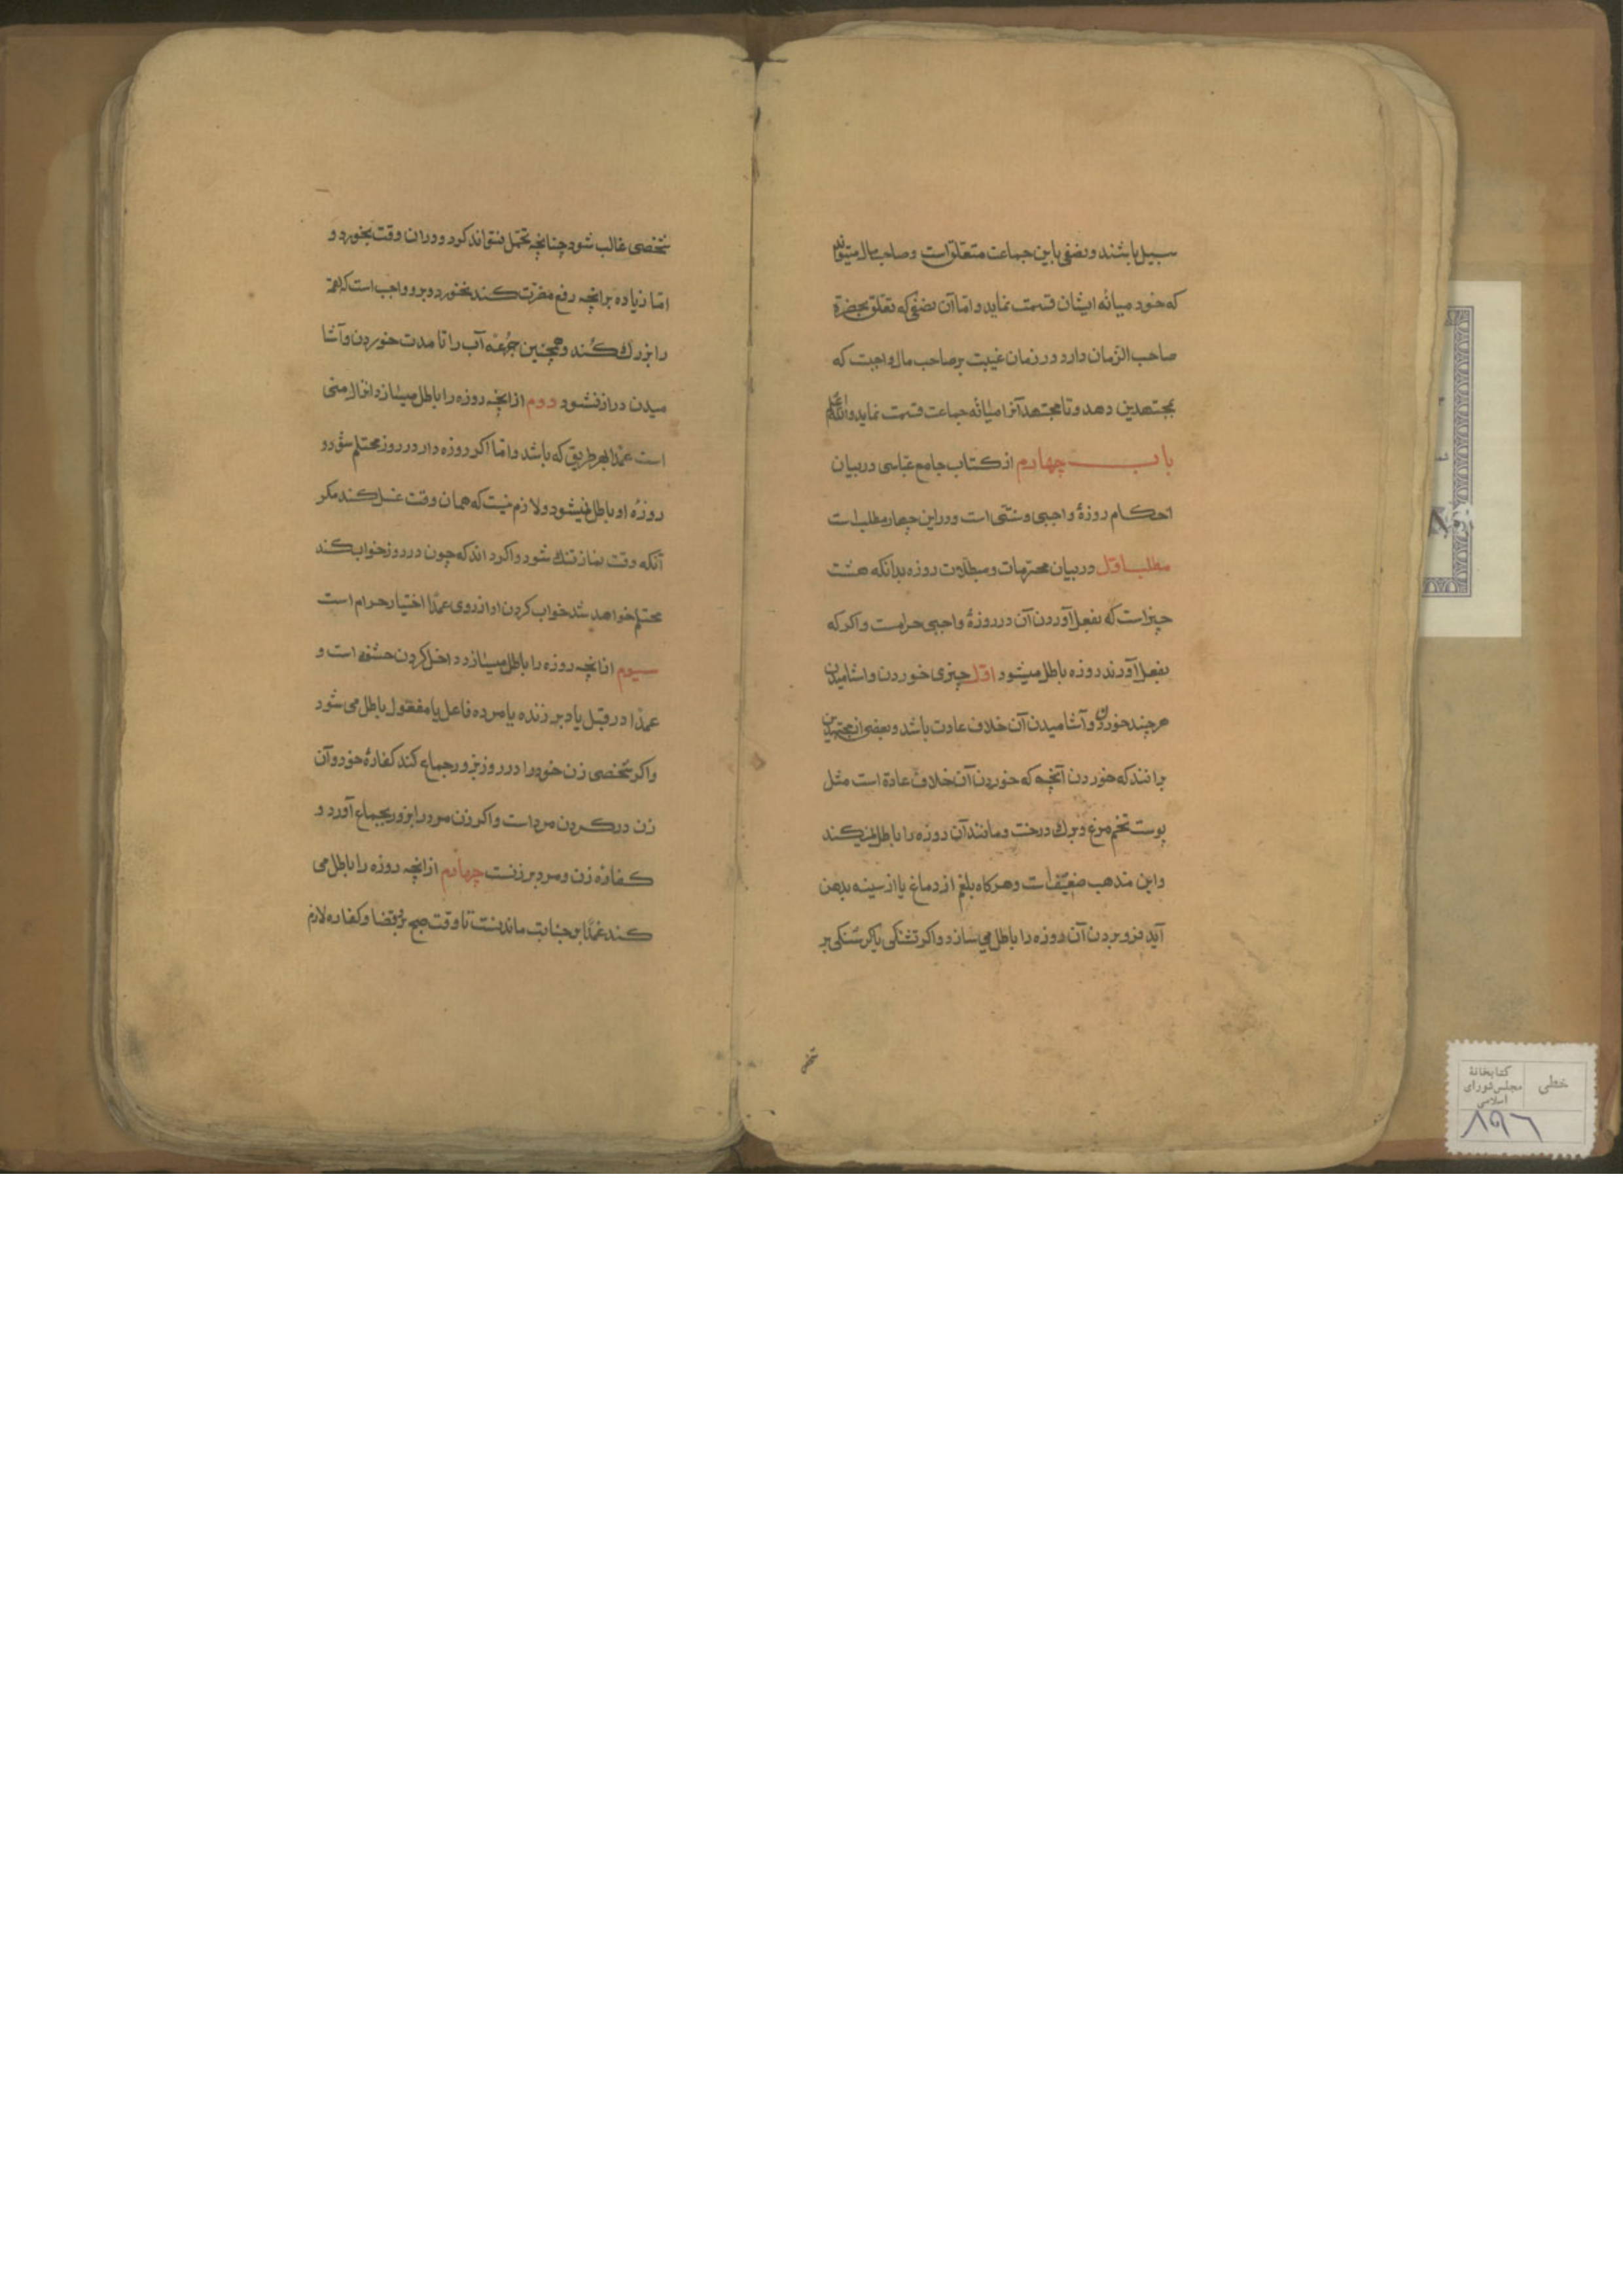 سبیل باشند و نصفی باین جماعت متعلق است و صاحب مال میتواند
که خود میانه ایشان قسمت نماید و اما آن نصفی که تعلق بحضرة
صاحب الزمان دارد در زمان غیبت بر صاحب مال واجبت که
بمجتهدین دهد و تا مجتهد آنرا میانه جماعت قسمت نماید والله اعلم
باب چهارم از کتاب جامع عباسی در بیان
احکام روزهٔ واجبی و سنتی است و در این چهار مطلب است
مطلب اول در بیان محرمات و مبطلات روزه بدانکه هشت
چیز است که بفعل آوردن آن در روزهٔ واجبی حرامست و اکر که
بفعل آورند روزه باطل میشود اول چیزی خوردن و اشامیدن
هر چند خوردن و آشامیدن آن خلاف عادت باشد و بعضی از مجتهدین
برانند که خوردن آنچه که خوردن آن خلاف عادة است مثل
پوست تخم مرغ و برك درخت و مانند آن روزه را باطل نمیکند
و این مذهب ضعیف است و هرکاه بلغم از دماغ یا از سینه بدهن
آید فرو بردن آن روزه را باطل می سازد و اکر تشنکی یا کرسنکی بر
شخصی
شخصی غالب شود چنانچه تحمل نتواند کرد و در ان وقت بخورد و
اما زیاده بر انچه رفع مضرت کند نخورد و برو واجب است که لقمة
را بزرك نکند و همچنین جرعه آب را تا مدت خوردن و آشا
میدن دراز نشود دوم از انچه روزه را باطل میسازد انزال منی
است عمدا بهر طریق که باشد و اما اکر روزه دار در روز محتلم شود
روزهٔ او باطل نمیشود و لازم نیست که همان وقت غسل کند مکر
آنکه وقت نماز تنك شود و اکر داند که چون در روز خواب کند
محتلم خواهد شد خواب کردن او از روی عمدًا اختیار حرام است
سیوم از انچه روزه را باطل میسازد داخل کردن حشفه است و
عمدًا در قبل یا دبر زنده یا مرده فاعل یا مفعول باطل می شود
و اکر شخصی زن خود را در روز بزور جماع کند کفارهٔ خود و آن
زن در کردن مرد است و اکر زن مرد را بزور بجماع آورد و
کفاره زن و مرد بر زنست چهارم از انچه روزه را باطل می
کند عمدًا بر جنابت ماندنست تا وقت صبح و قضا و کفاره لازم
خطی
کتابخانهٔ
مجلس شورای
اسلامی
۸۹۶